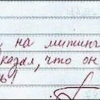 на митинг
казал, что он